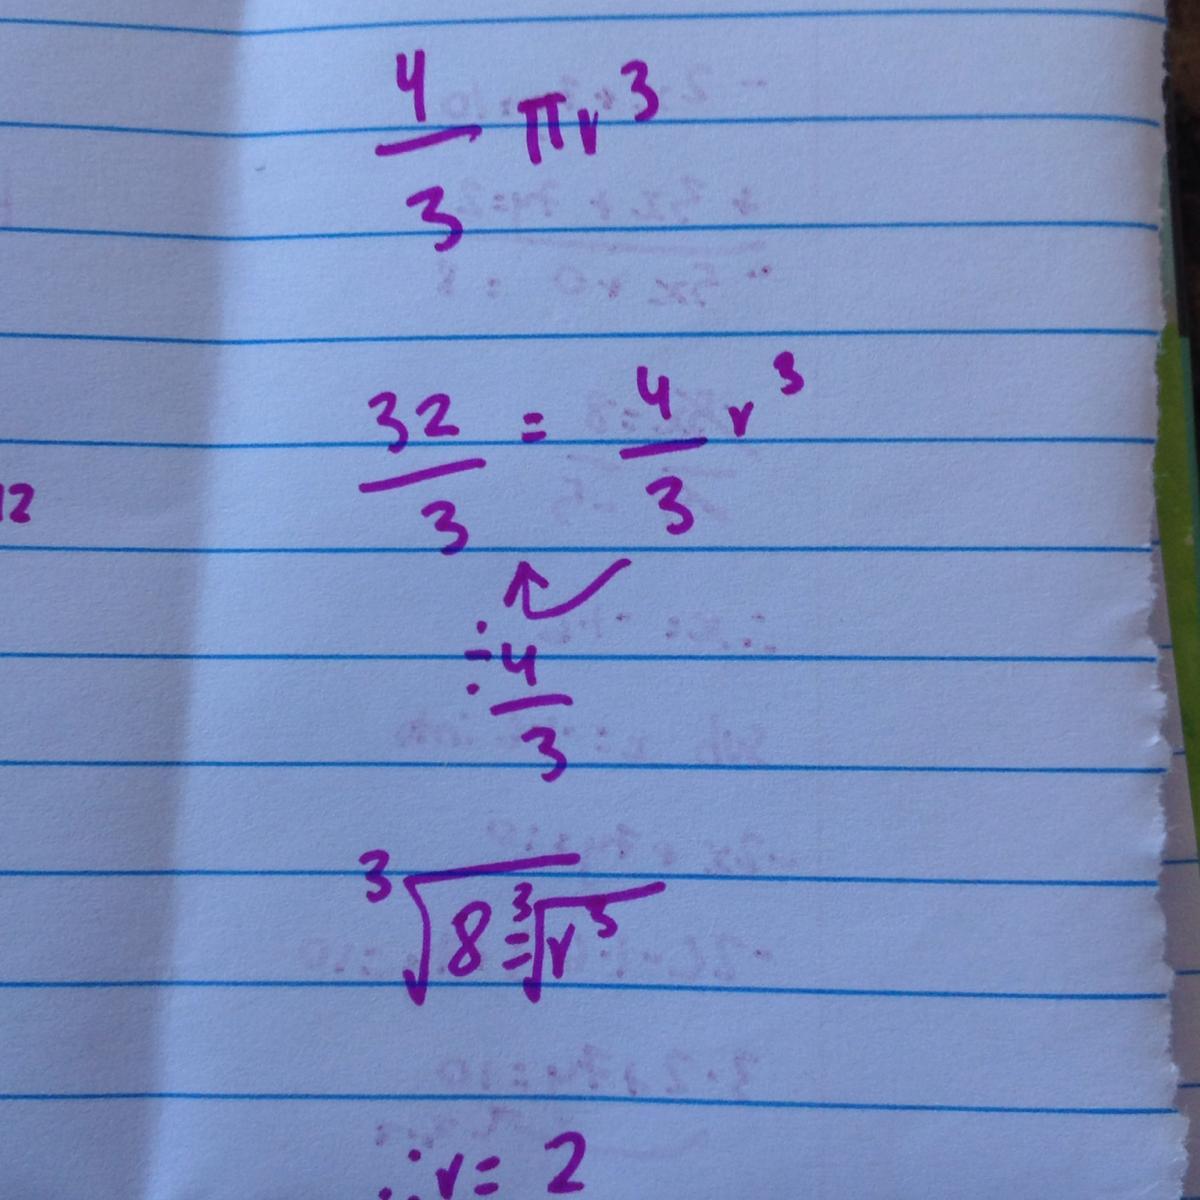 4/3 πr³
32/3 = 4/3 r³
÷ 4/3
³√8 = ³√r³
∴ r = 2
12